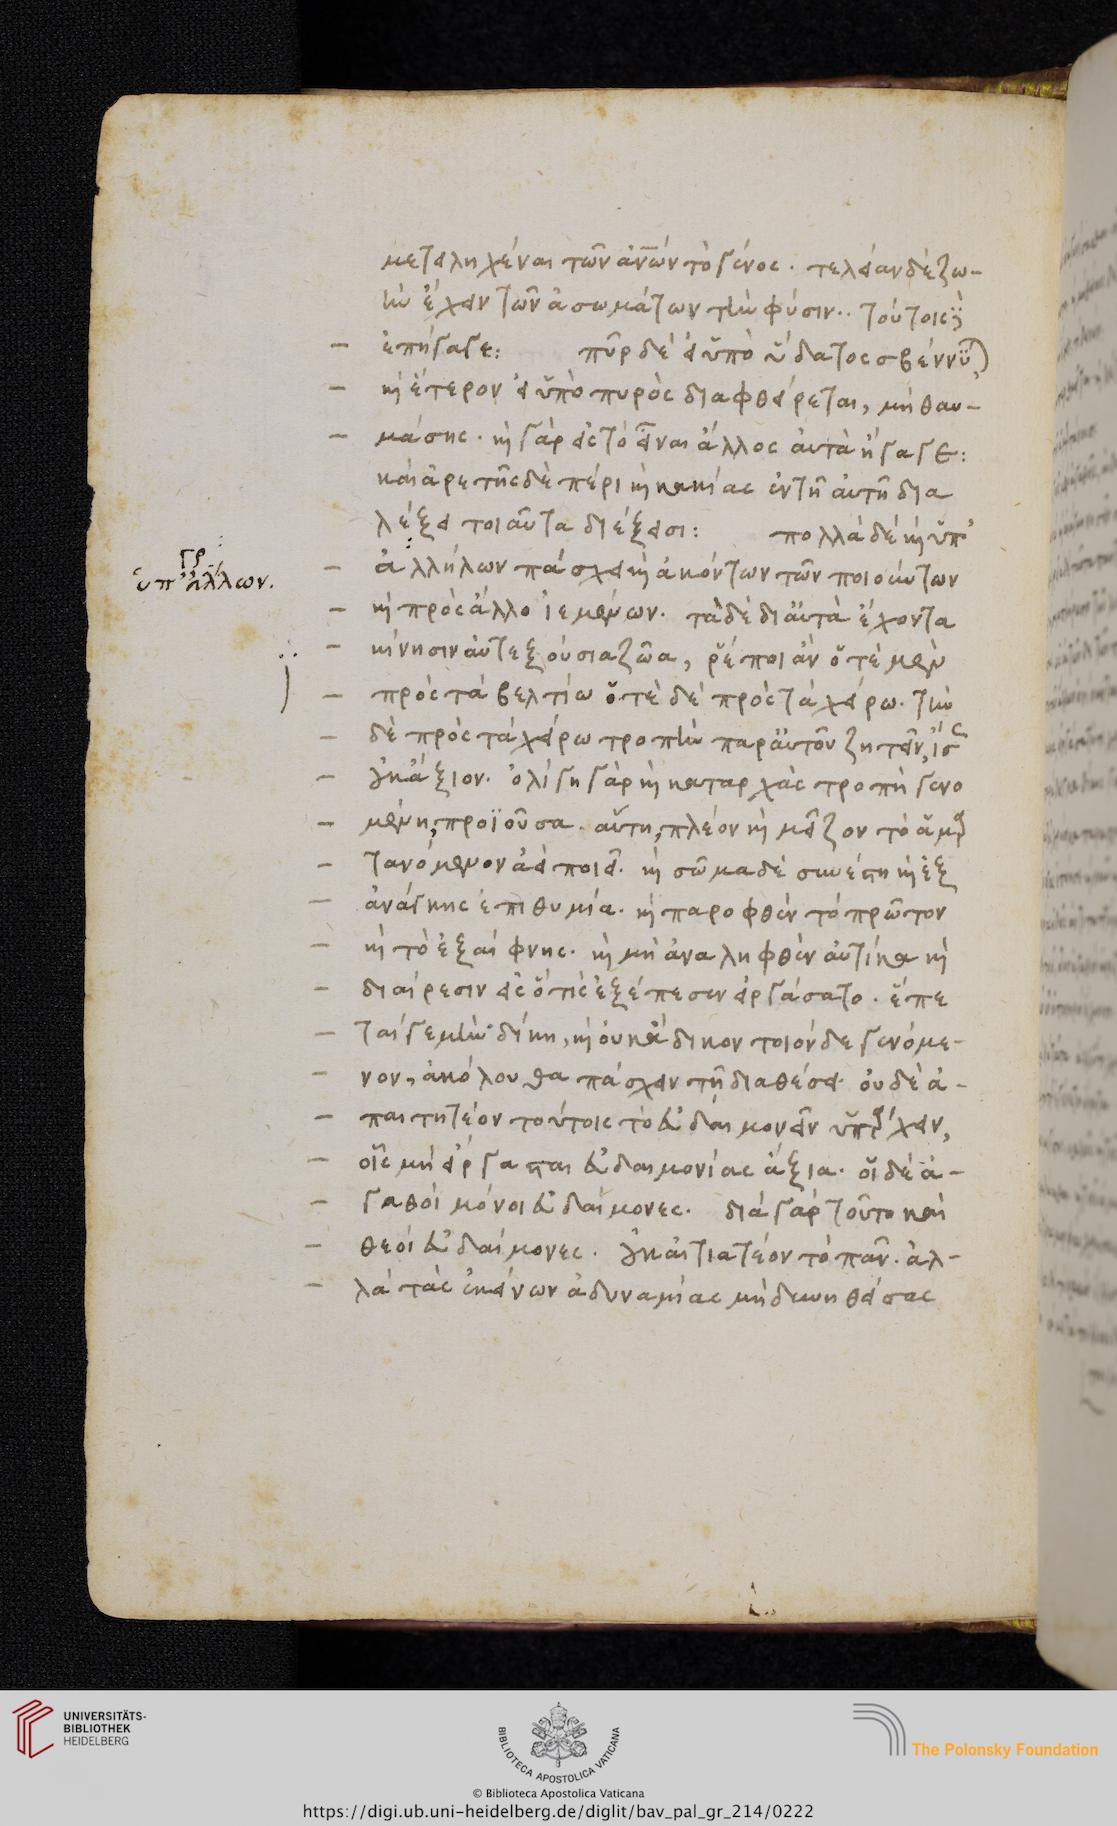 μεταληχέναι τῶν ἀνων τὸ γένος. τελείαν δὲ ζω-
ὴν ἔχειν τῶν ἀσωμάτων τὴν φύσιν. τούτοις
ἐπήγαγε: πῦρ δὲ εἰ ὑπὸ ὕδατος σβέννυται
καὶ ἕτερον εἰ ὑπὸ πυρὸς διαφθείρεται, μὴ θαυ-
μάσης. καὶ γὰρ εἰς τὸ εἶναι ἄλλος αὐτὰ ἤγαγε:
καὶ ἀρετῆς δὲ πέρι καὶ κακίας ἐν τῆ αὐτῆ δια
λέξει τοιαῦτα διέξεισι: πολλὰ δὲ καὶ ὑπ'
γρ
ὑπ' ἄλλων.
ἀλλήλων πάσχει καὶ ἀκόντων τῶν ποιούντων
καὶ πρὸς ἄλλο ἱεμένων. τὰ δὲ δι αὑτὰ ἔχοντα
κίνησιν αὐτεξούσια ζῶα, ῥέποι ἂν ὁτὲ μὲν
πρὸς τὰ βελτίω ὁτὲ δὲ πρὸς τὰ χείρω. τὴν
δὲ πρὸς τὰ χείρω τροπὴν παρ αὑτῶν ζητεῖν, ἴσως
οὐκ ἄξιον. ὀλίγη γὰρ καὶ καταρχὰς τροπὴ γενο
μένη, προϊοῦσα. αὕτη, πλέον καὶ μεῖζον τὸ ἁμαρ
τανόμενον ἀεὶ ποιεῖ. καὶ σῶμα δὲ σύνεστι καὶ ἐξ
ἀνάγκης ἐπιθυμία. καὶ παροφθὲν τὸ πρῶτον
καὶ τὸ ἐξαίφνης. καὶ μὴ ἀναληφθὲν αὐτίκα καὶ
διαίρεσιν εἰς ὅ τις ἐξέπεσεν εἰργάσατο. ἕπε
ταί γε μὴν δίκη, καὶ οὐκ ἄδικον τοιόνδε γενόμε-
νον, ἀκόλουθα πάσχειν τῆ διαθέσει. οὐδὲ ἀ-
παιτητέον τούτοις τὸ εὐδαιμονεῖν ὑπάρχειν,
οἷς μὴ εἴργασται εὐδαιμονίας ἄξια. οἱ δὲ ἀ-
γαθοὶ μόνοι εὐδαίμονες. διὰ γὰρ τοῦτο καὶ
θεοὶ εὐδαίμονες. οὐκ αἰτιατέον τὸ πᾶν. ἀλ-
λὰ τὰς ἐκείνων ἀδυναμίας μὴ δυνηθείσας
UNIVERSITÄTS-
BIBLIOTHEK
HEIDELBERG
BIBLIOTECA APOSTOLICA VATICANA
The Polonsky Foundation
© Biblioteca Apostolica Vaticana
https://digi.ub.uni-heidelberg.de/diglit/bav_pal_gr_214/0222